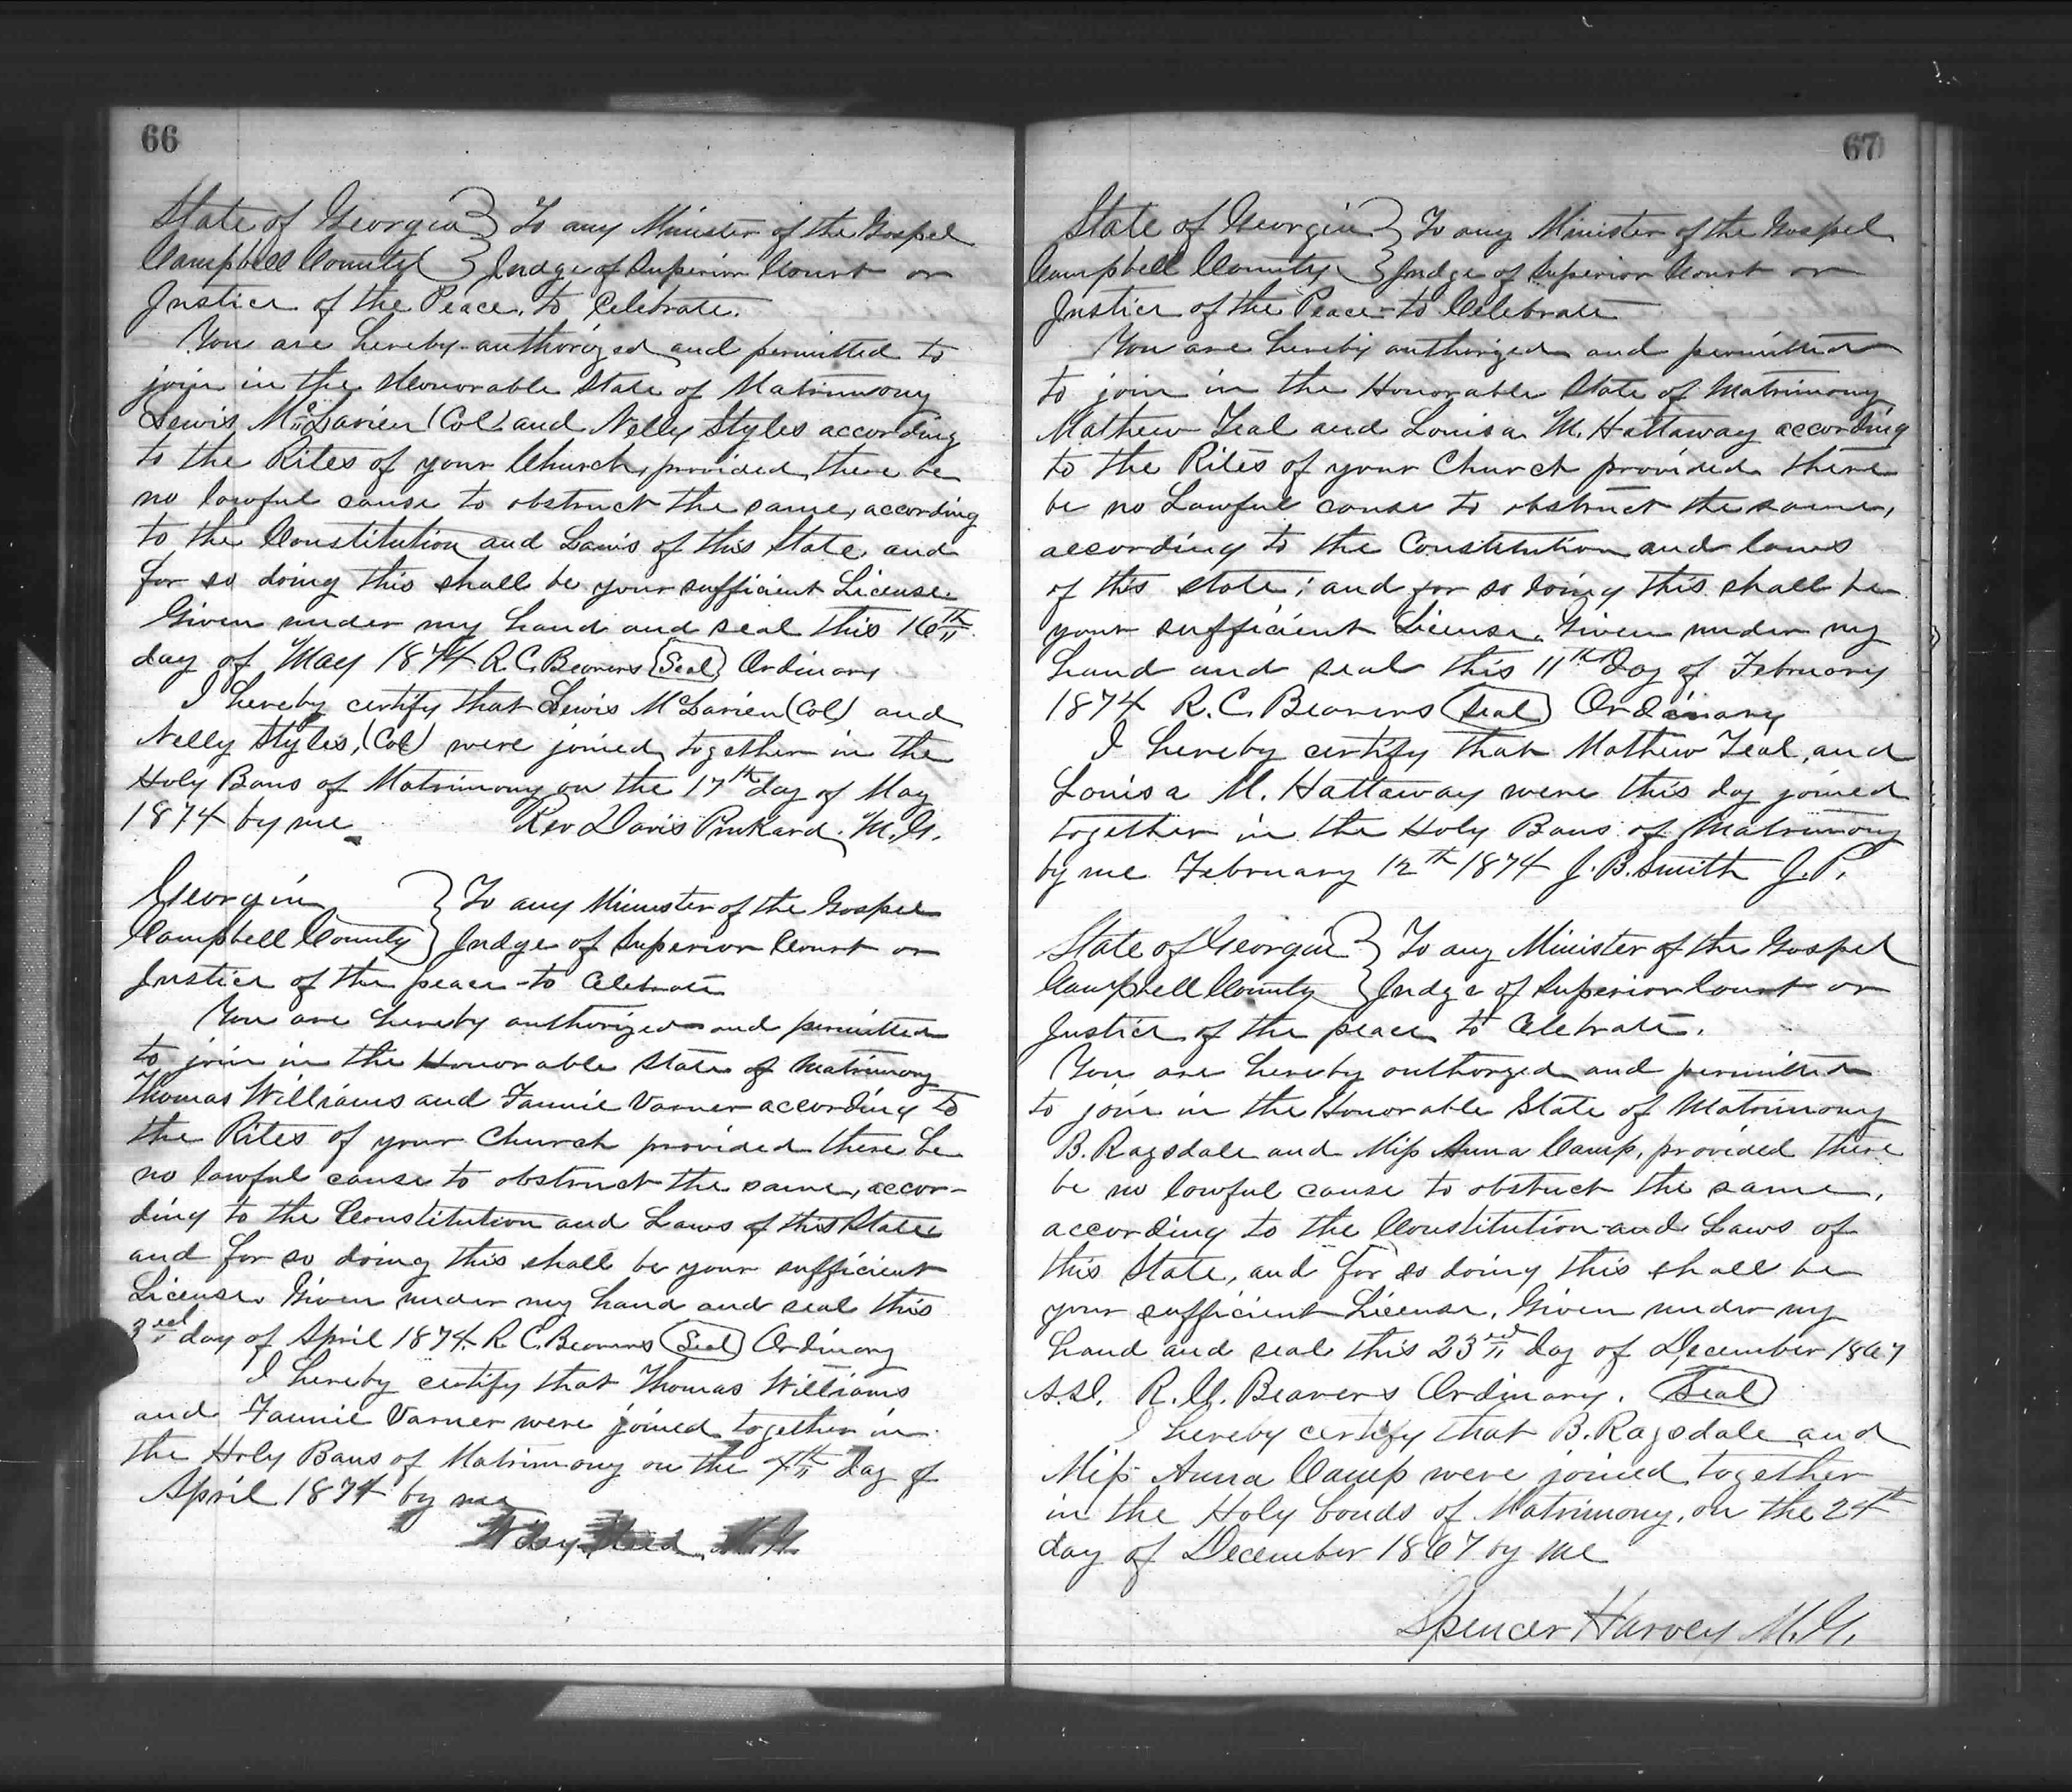 66
State of Georgia } To any Minister of the Gospel
Campbell County } Judge of Superior Court or
Justice of the Peace, to Celebrate.
You are hereby authorized and permitted to
join in the Honorable State of Matrimony
Lewis McLarien (Col) and Nelly Styles according
to the Rites of your Church, provided there be
no lawful cause to obstruct the same, according
to the Constitution and Laws of this State and
for so doing this shall be your sufficient License
Given under my hand and seal this 16th
day of May 1874 R. C. Beavers (Seal) Ordinary
I hereby certify that Lewis McLarien (Col) and
Nelly Styles, (Col) were joined together in the
Holy Bans of Matrimony on the 17th day of May
1874 by me Rev Davis Punkard. M. G.
Georgia } To any Minister of the Gospel
Campbell County } Judge of Superior Court or
Justice of the peace - to Celebrate
You are hereby authorized and permitted
to join in the Honorable State of Matrimony
Thomas Williams and Fannie Varner according to
the Rites of your Church provided there be
no lawful cause to obstruct the same, accor-
ding to the Constitution and Laws of this State
and for so doing this shall be your sufficient
License. Given under my hand and seal this
3rd day of April 1874. R. C. Beavers (Seal) Ordinary
I hereby certify that Thomas Williams
and Fannie Varner were joined together in
the Holy Bans of Matrimony on the 4th day of
April 1874 by me
67
State of Georgia } To any Minister of the Gospel
Campbell County } Judge of Superior Court or
Justice of the Peace - to Celebrate
You are hereby authorized and permitted
to join in the Honorable State of Matrimony
Mathew Teal and Louisa M. Hattaway according
to the Rites of your Church provided there
be no Lawful cause to obstruct the same,
according to the Constitution and laws
of this state; and for so doing this shall be
your sufficient License. Given under my
hand and seal this 11th Day of February
1874 R. C. Beavers (Seal) Ordinary
I hereby certify that Mathew Teal, and
Louisa M. Hattaway were this day joined
together in the Holy Bans of Matrimony
by me February 12th 1874 J. B. Smith J. P.
State of Georgia } To any Minister of the Gospel
Campbell County } Judge of Superior Court or
Justice of the peace to Celebrate.
You are hereby authorzed and permitted
to join in the Honorable State of Matrimony
B. Ragsdale and Miss Anna Camp, provided there
be no lawful cause to obstuct the same,
according to the Constitution and Laws of
this State, and for so doing this shall be
your sufficient License. Given under my
hand and seal this 23rd day of December 1867
A.D. R. C. Beavers Ordinary. (Seal)
I hereby certify that B. Ragsdale and
Miss Anna Camp were joined together
in the Holy bonds of Matrimony, on the 24th
day of December 1867 by me
Spencer Harvey M. G.